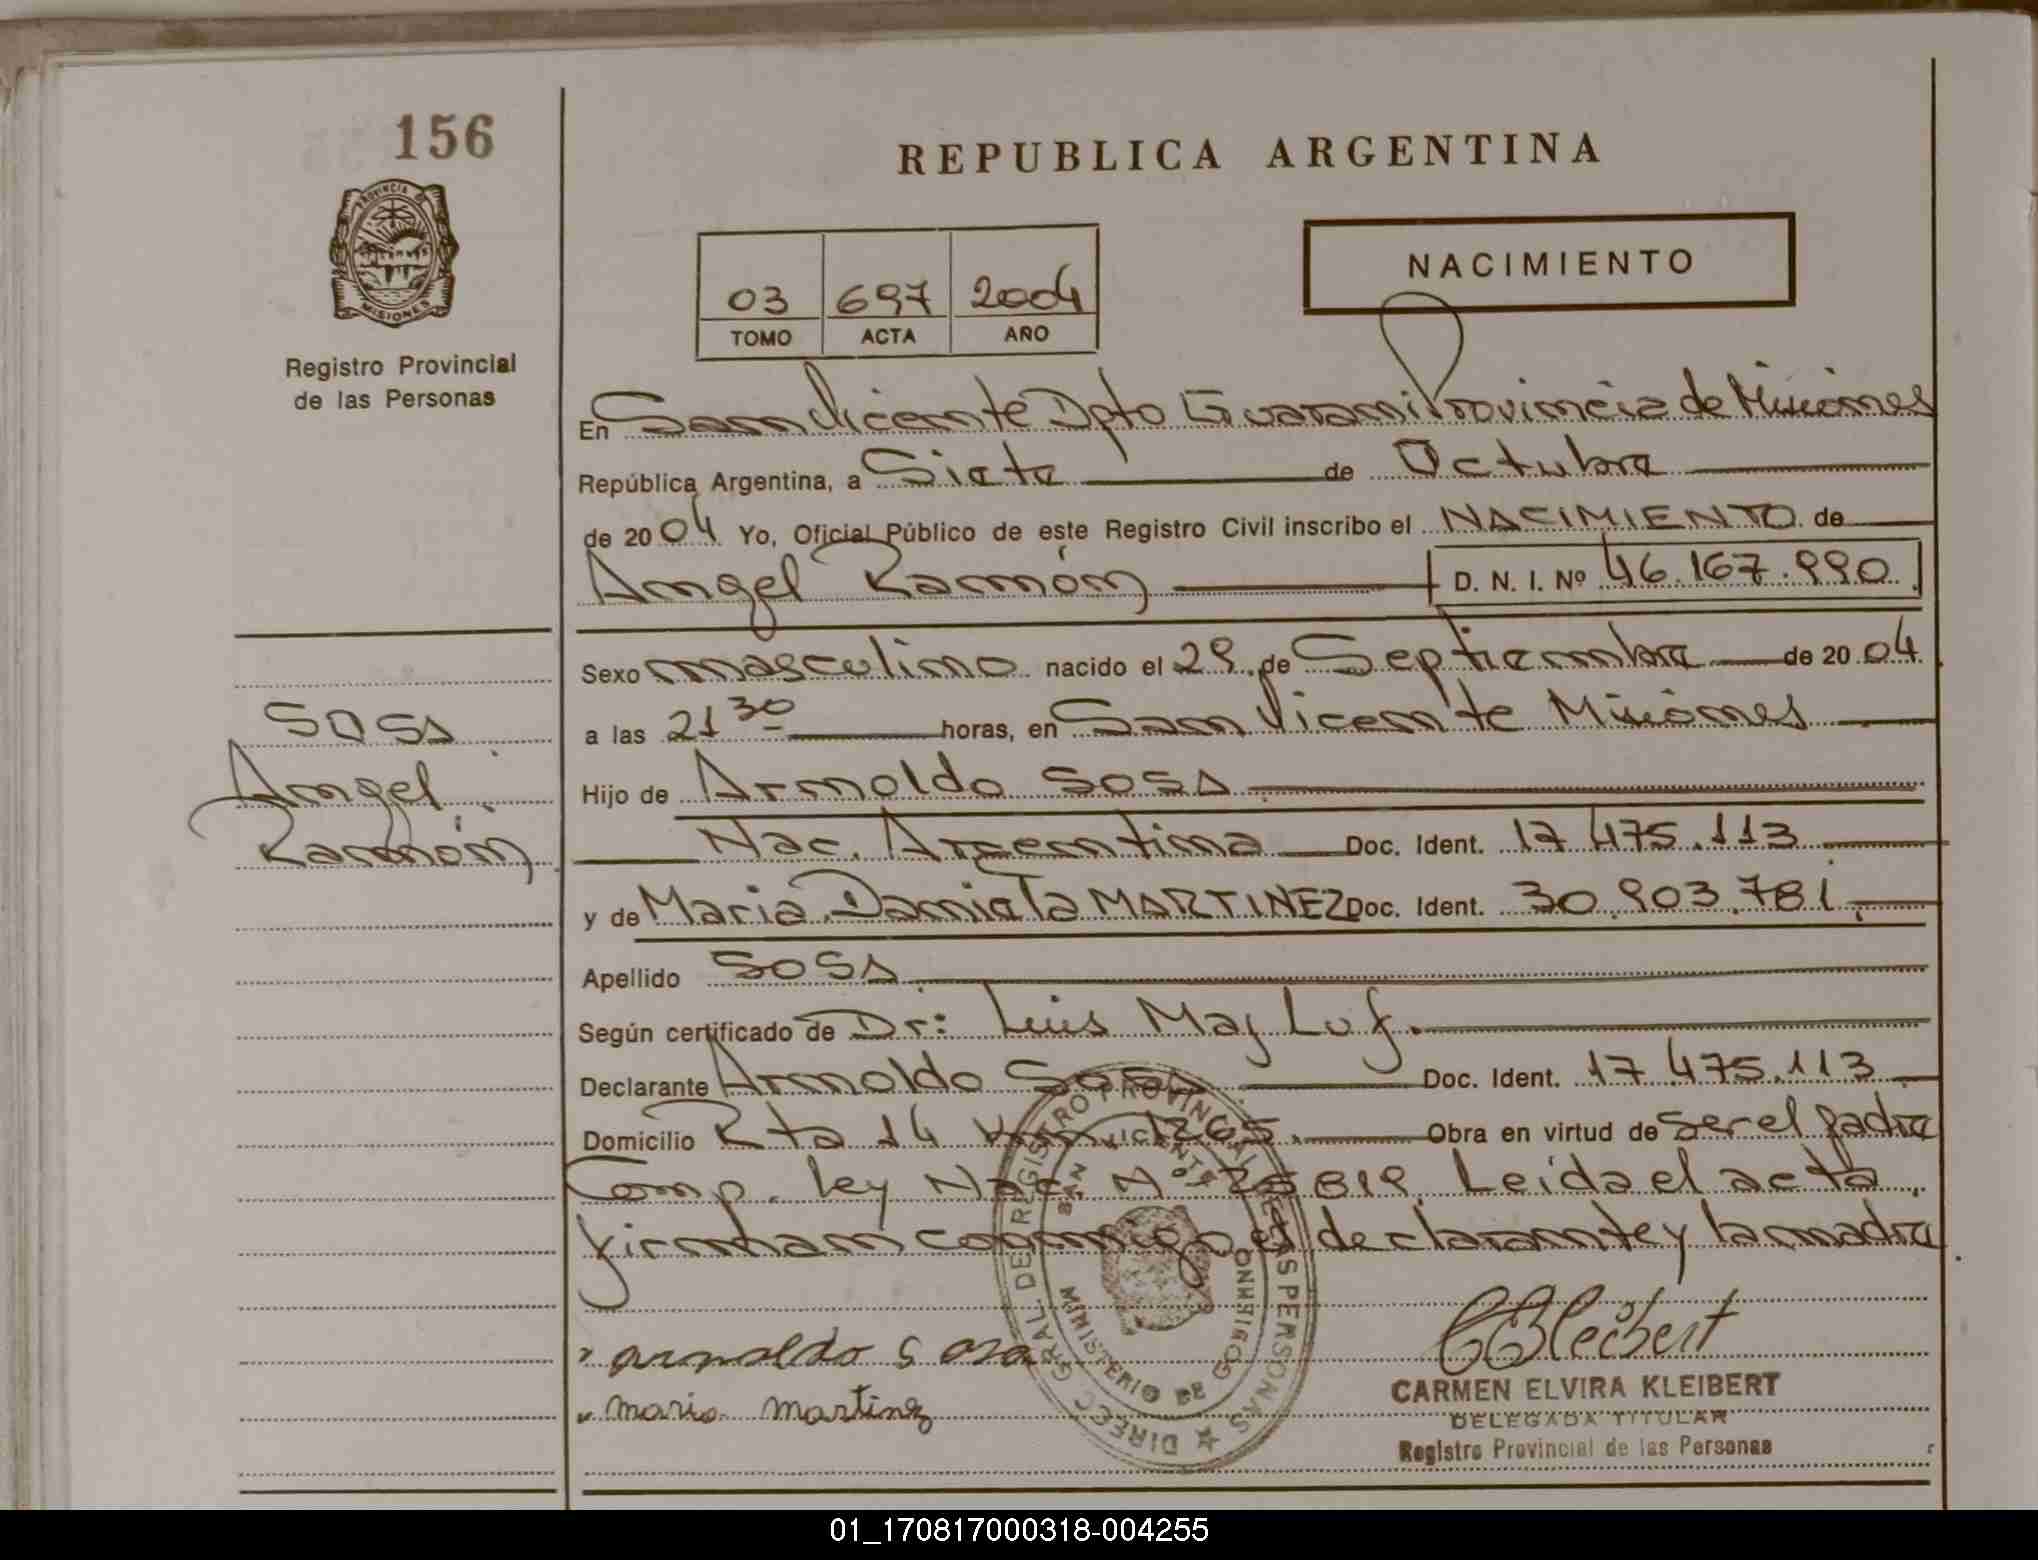 156
PROVINCIA DE MISIONES
Registro Provincial
de las Personas
REPUBLICA ARGENTINA
03 697 2004
TOMO ACTA AÑO
NACIMIENTO
En San Vicente Dpto Guarani Provincia de Misiones
República Argentina, a Siete de Octubre
de 2004 Yo, Oficial Público de este Registro Civil inscribo el NACIMIENTO de
Angel Ramón D. N. I. Nº 46.167.990
Sexo masculino nacido el 29 de Septiembre de 2004
a las 21 30 horas, en San Vicente Misiones
SOSA
Angel
Ramón
Hijo de Arnoldo SOSA
Nac. Argentina Doc. Ident. 17.475.113
y de Maria Daniela MARTINEZ Doc. Ident. 30.903.781
Apellido SOSA
Según certificado de Dr: Luis Maj Luf.
Declarante Arnoldo Sosa Doc. Ident. 17.475.113
Domicilio Rta 14 Km 1265. Obra en virtud de ser el padre
Comp. Ley Nac. Nº 25819. Leida el acta,
firman conmigo el declarante y la madre.
arnoldo Sosa
maria martinez
DIREC. GRAL DE REGISTRO PROVINCIAL DE LAS PERSONAS
SAN VICENTE
MINISTERIO DE GOBIERNO
CKleibert
CARMEN ELVIRA KLEIBERT
DELEGADA TITULAR
Registro Provincial de las Personas
01_170817000318-004255